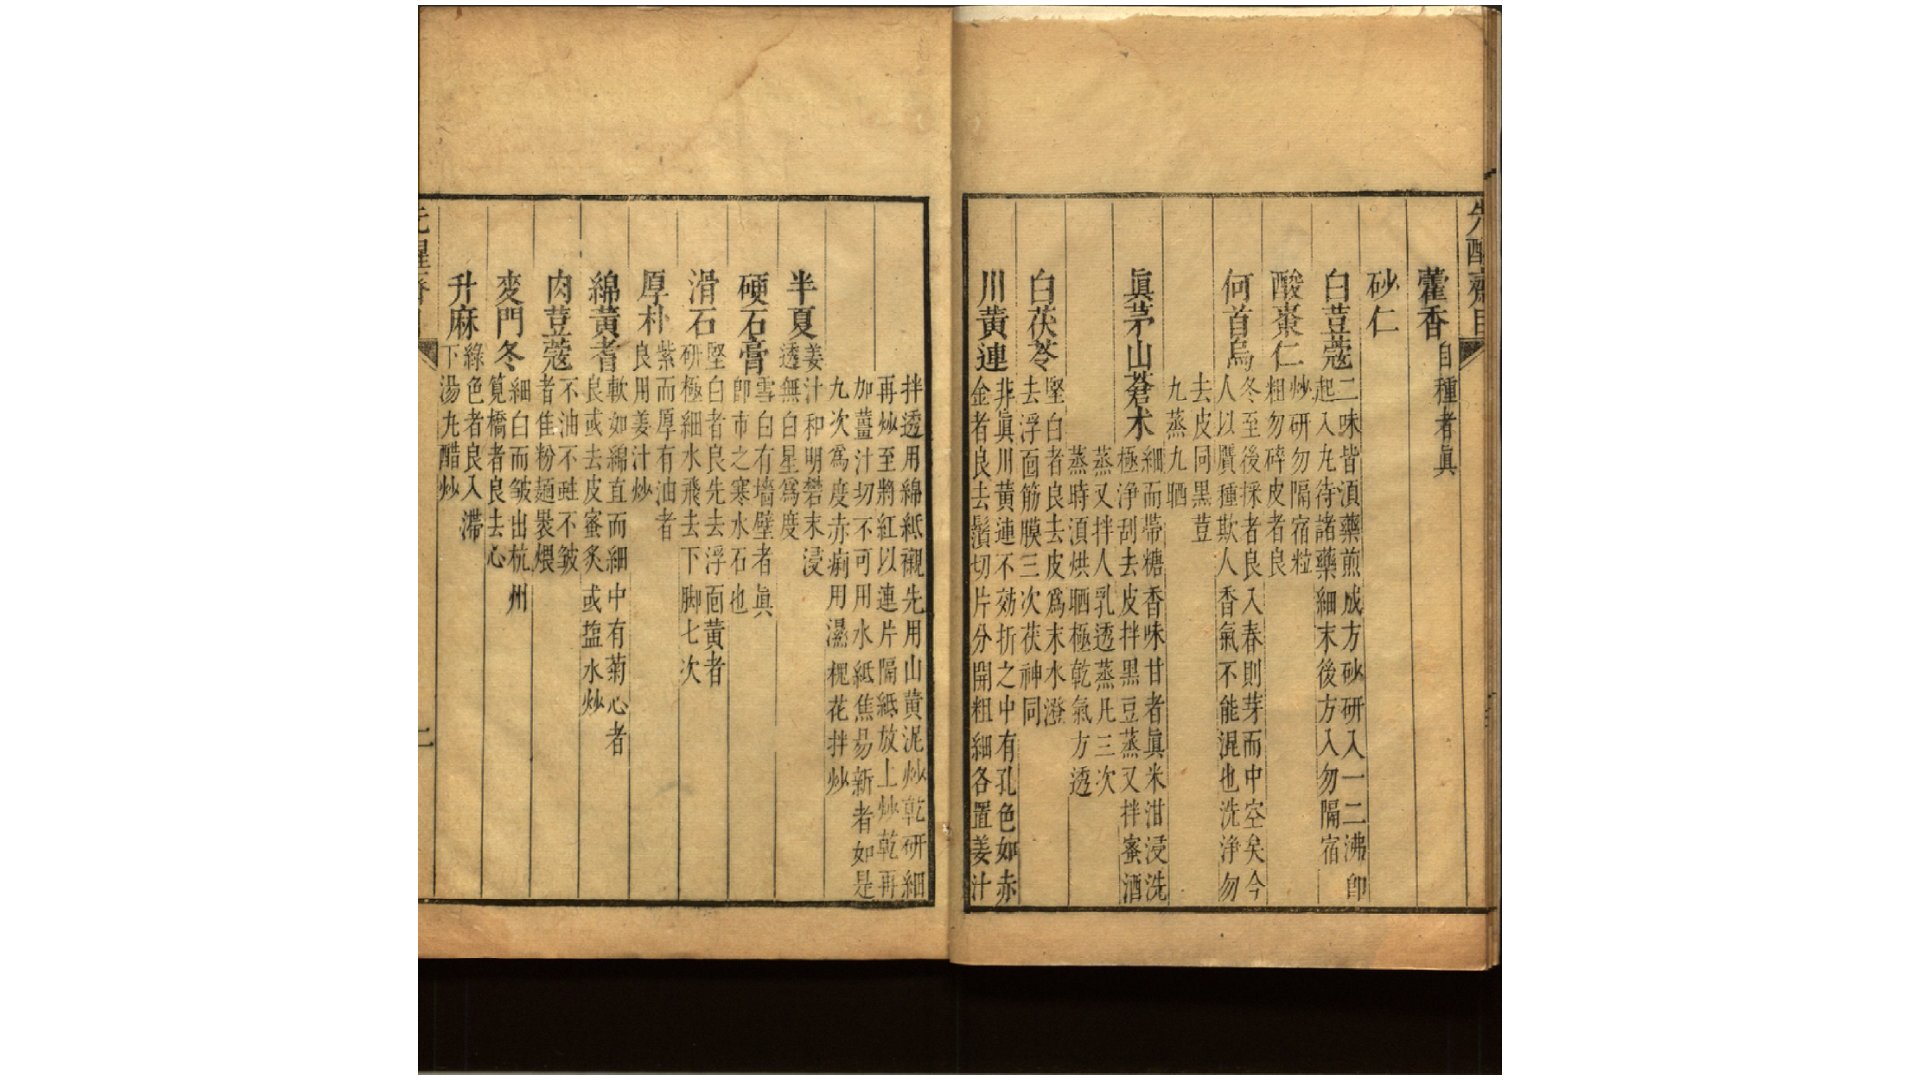 先醒齋
藿香自種者真
砂仁
白荳蔻二味皆湏藥煎成方砂研入一二沸卽
起入丸待諸藥細末後方入勿隔宿
酸棗仁炒研勿隔宿粒
粗勿碎皮者良
何首烏冬至後採者良入春則芽而中空矣今
人以贋種欺人香氣不能混也洗浄勿
去皮同黒荳
九蒸九晒
眞茅山蒼术細而帶糖香味甘者眞米泔浸洗
極浄刮去皮拌黒豆蒸又拌蜜酒
蒸又拌人乳透蒸凡三次
蒸時湏烘晒極乾氣方透
白茯苓堅白者良去皮爲末水澄
去浮面筋膜三次茯神同
川黃連非眞川黃連不効折之中有孔色如赤
金者良去鬚切片分開粗細各置姜汁
拌透用綿紙襯先用山黃泥炒乾研細
再炒至將紅以連片隔紙放上炒乾再
加薑汁切不可用水紙焦易新者如是
九次爲度赤痢用濕槐花拌炒
半夏姜汁和明礬末浸
透無白星爲度
硬石膏雪白有墻壁者眞
卽市之寒水石也
滑石堅白者良先去浮面黃者
研極細水飛去下脚七次
厚朴紫而厚有油者
良用姜汁炒
綿黃耆軟如綿直而細中有菊心者
良或去皮蜜炙或塩水炒
肉荳蔻不油不蛀不皺
者佳粉麵褁煨
麥門冬細白而皺出杭州
筧橋者良去心
升麻綠色者良入滯
下湯九醋炒
先醒齋
二